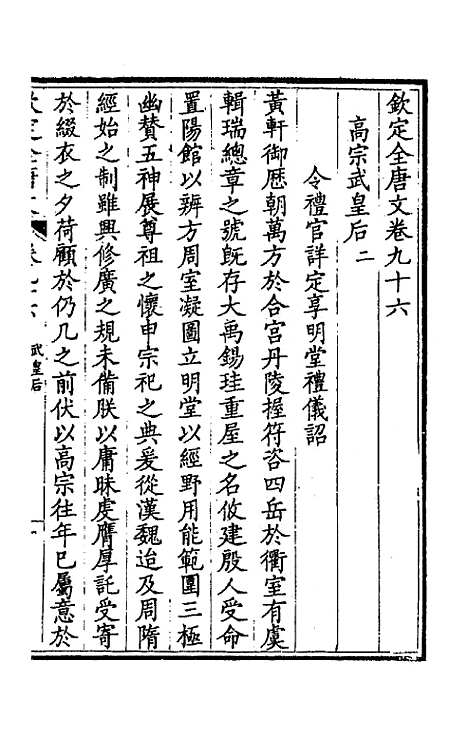 欽定全唐文卷九十六
高宗武皇后二
令禮官詳定享明堂禮儀詔
黃軒御厯朝萬方於合宮丹陵握符咨四岳於衢室有虞
輯瑞總章之號旣存大禹錫珪重屋之名攸建殷人受命
置陽館以辨方周室凝圖立明堂以經野用能範圍三極
幽贊五神展尊祖之懷申宗祀之典爰從漢魏迨及周隋
經始之制雖興修廣之規未備朕以庸昧虔膺厚託受寄
於綴衣之夕荷顧於仍几之前伏以高宗往年已屬意於
欽定全唐文 卷九六 武皇后 一